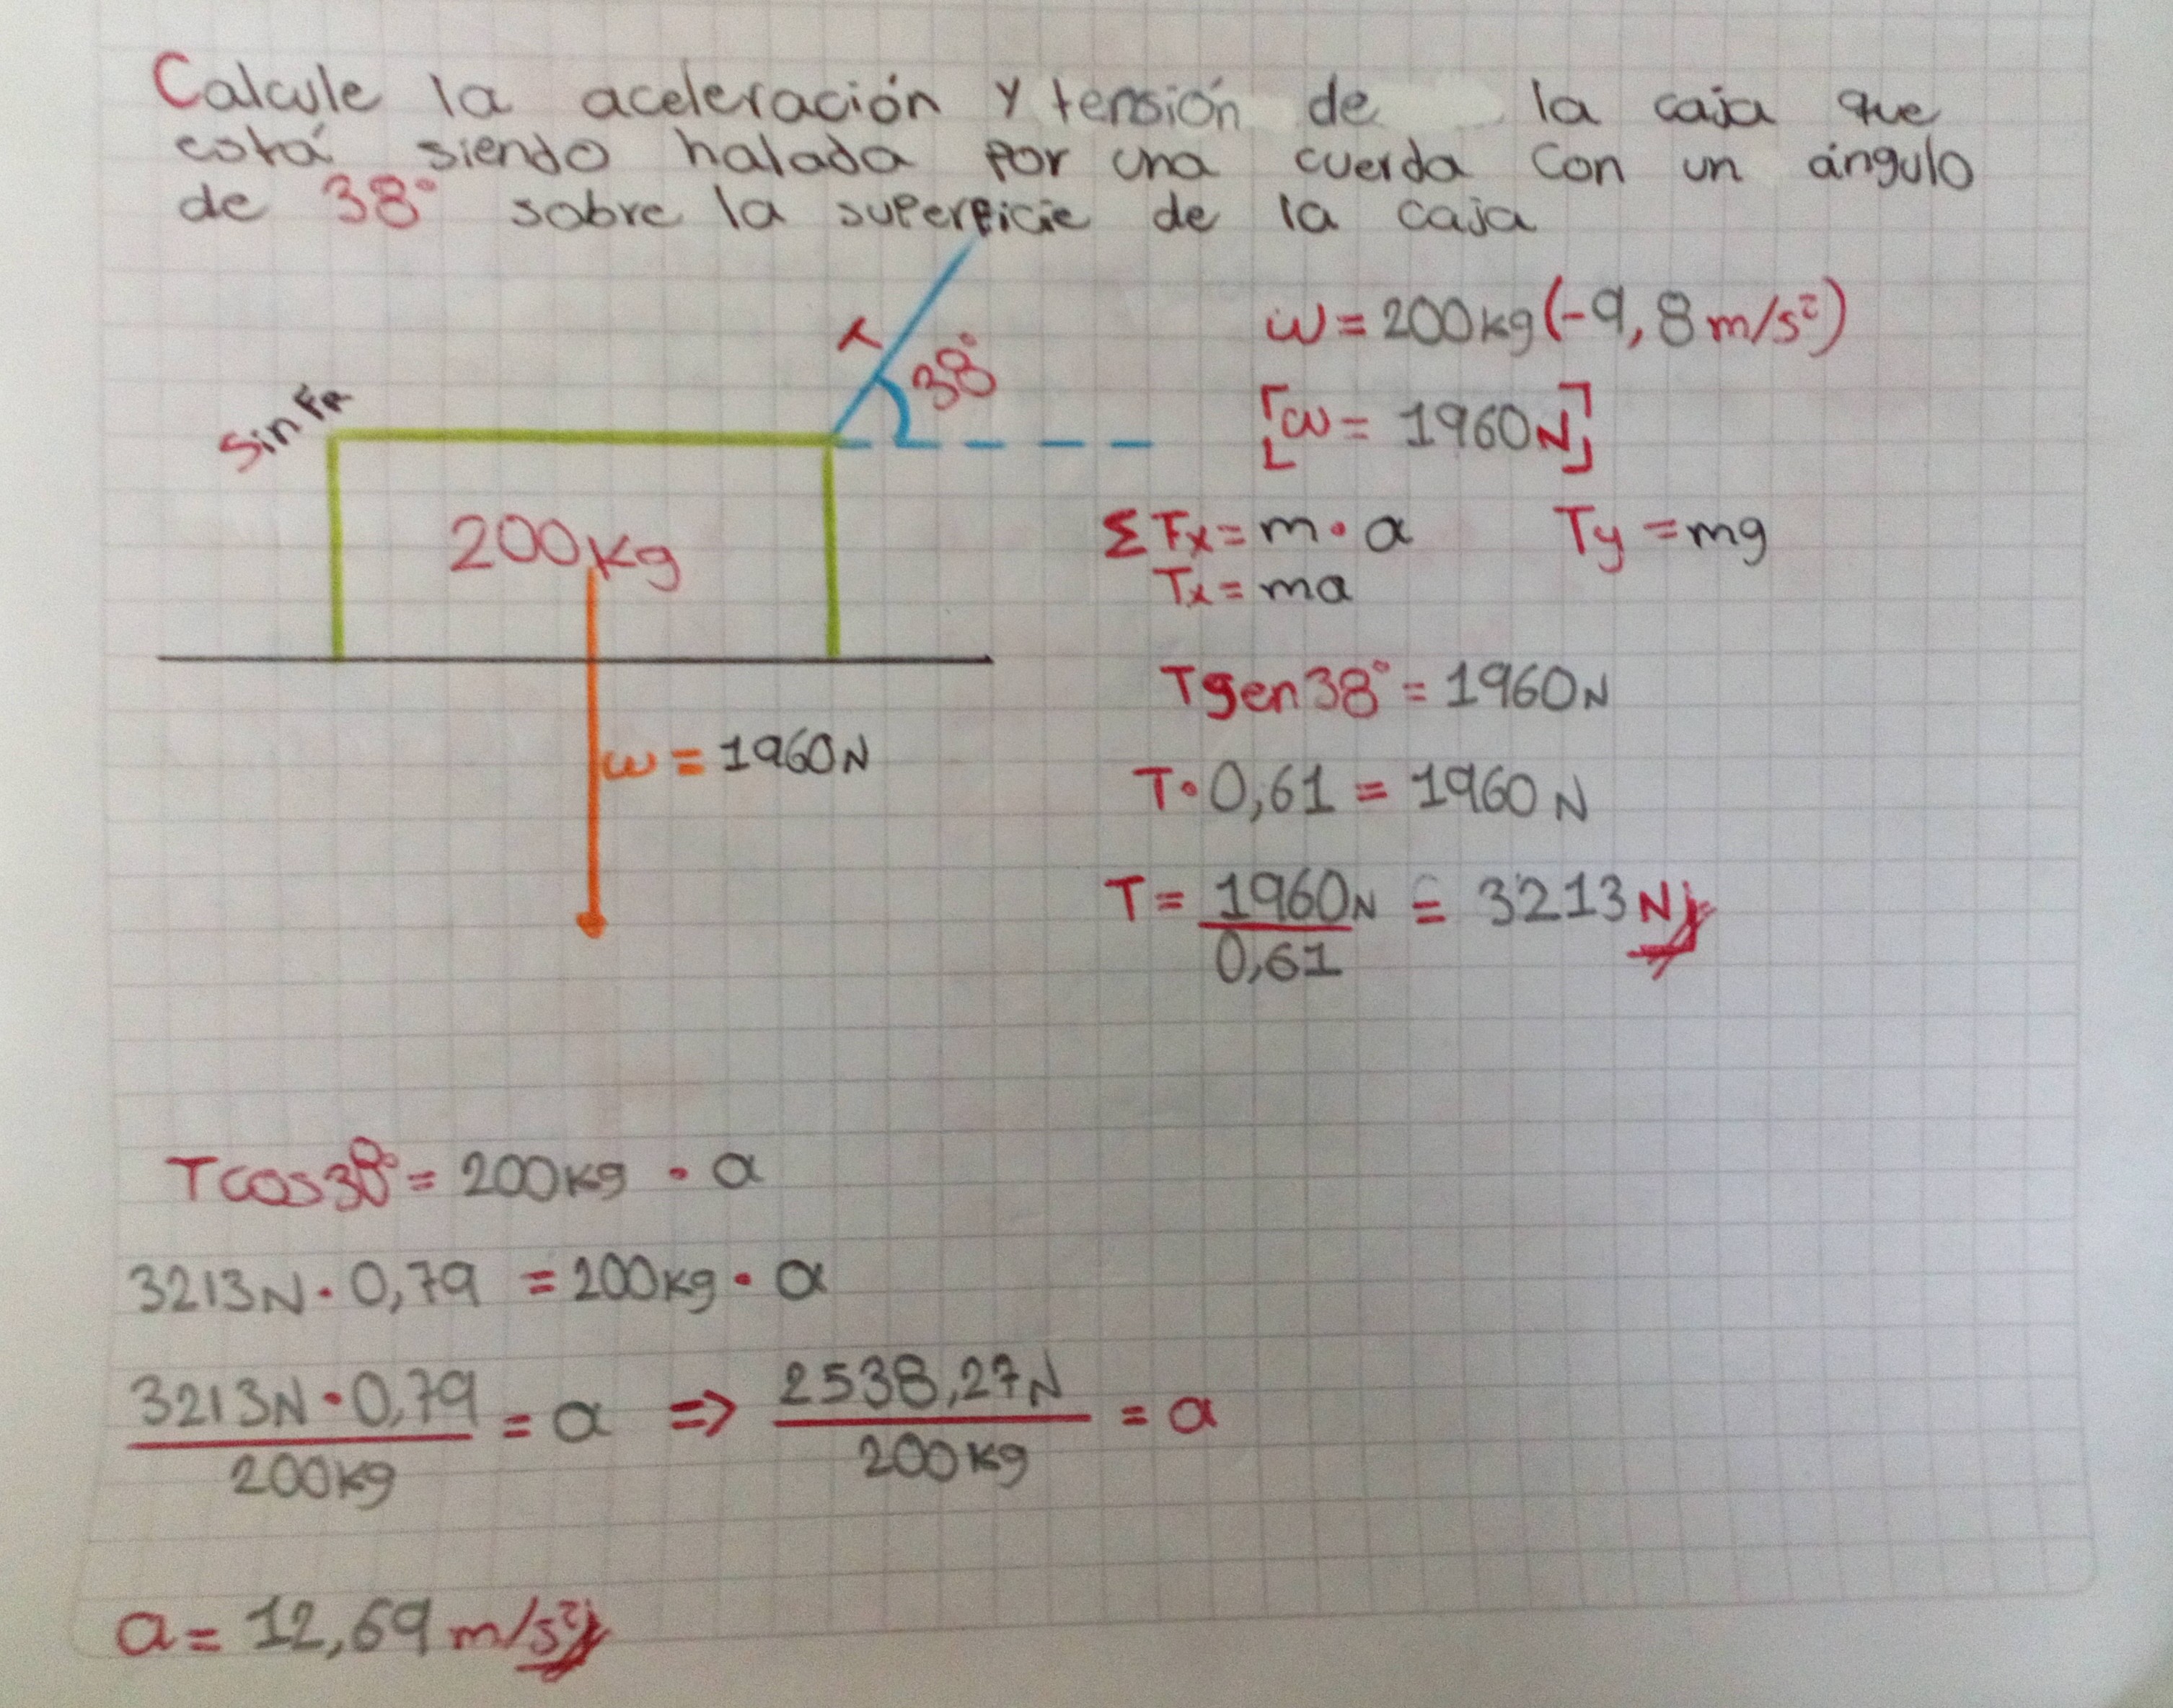 Calcule la aceleración y tensión de la caja que
está siendo halada por una cuerda con un ángulo
de 38° sobre la superficie de la caja
Sin FR
T
38°
200kg
w = 1960N
w = 200kg (-9,8 m/s²)
[w = 1960N]
ΣFx = m·a
Ty = mg
Tx = ma
Tsen38° = 1960N
T·0,61 = 1960N
T = 1960N / 0,61 = 3213N
Tcos38° = 200kg · a
3213N · 0,79 = 200kg · a
3213N · 0,79 / 200kg = a ⇒ 2538,27N / 200kg = a
a = 12,69 m/s²